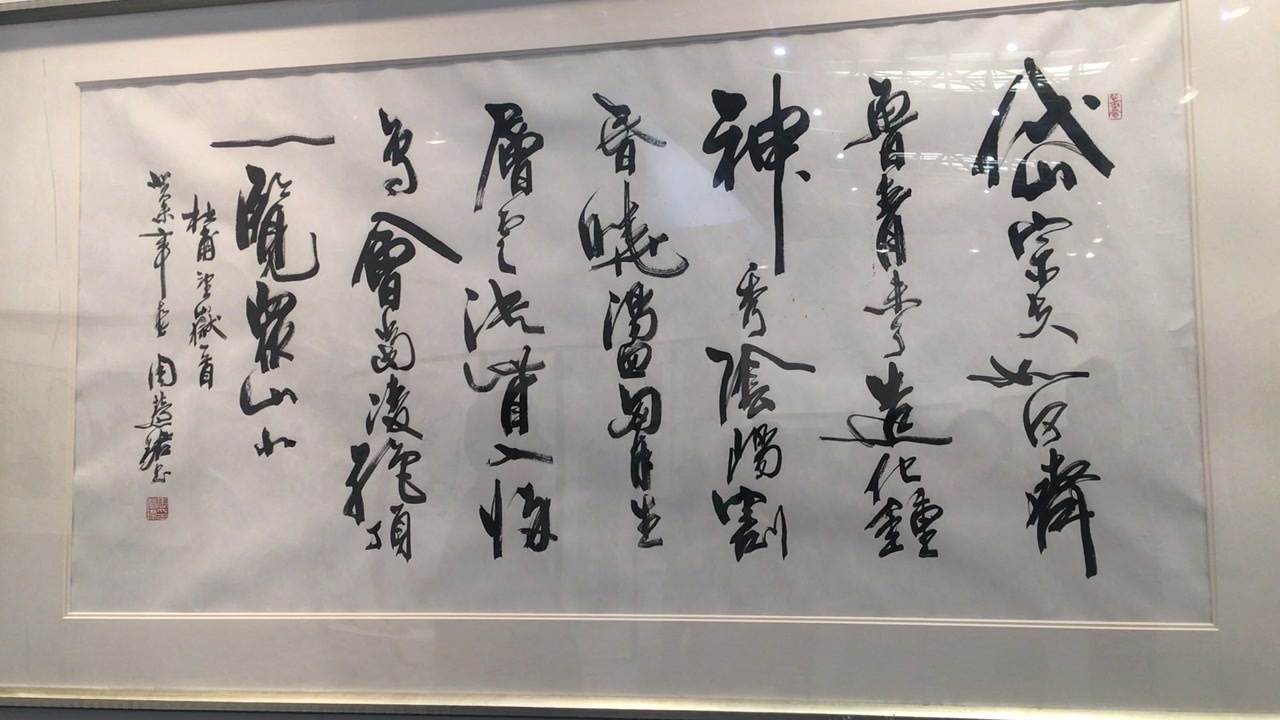 岱宗夫如何齊
魯青未了造化鍾
神秀陰陽割
昏曉盪胷生
層云決眥入歸
鳥會當凌絕頂
一覽眾山小
杜甫望嶽一首
年春周慧珺書